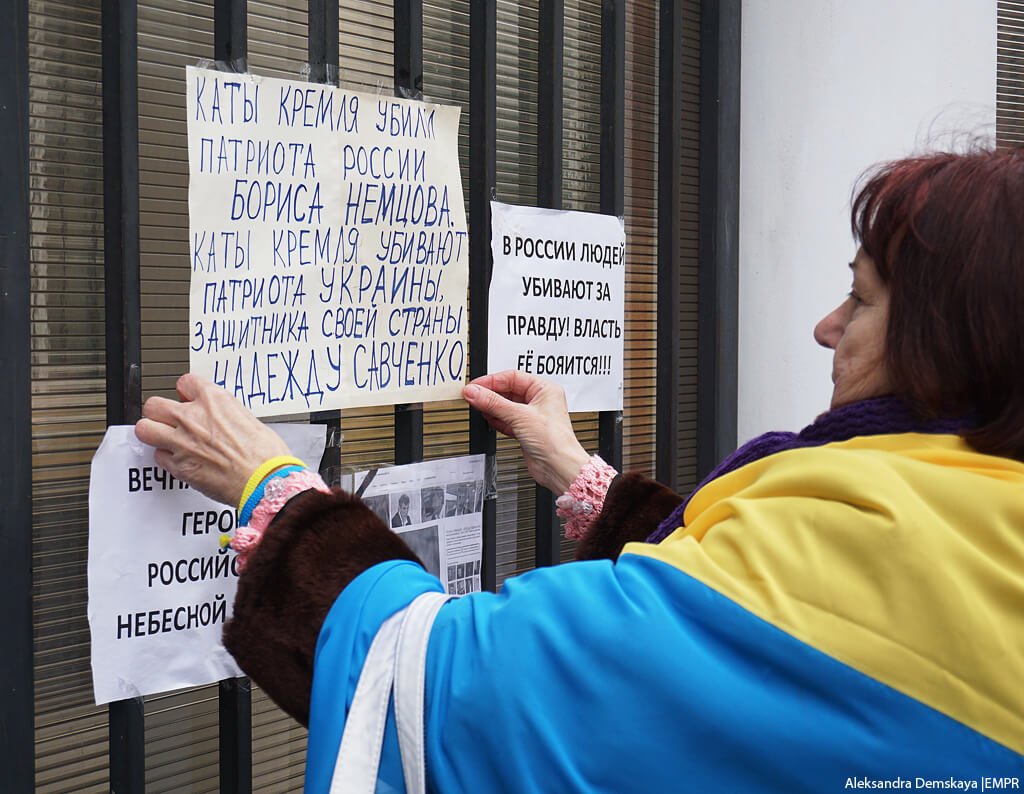 КАТЫ КРЕМЛЯ УБИЛИ
ПАТРИОТА РОССИИ
БОРИСА НЕМЦОВА.
КАТЫ КРЕМЛЯ УБИВАЮТ
ПАТРИОТА УКРАИНЫ,
ЗАЩИТНИКА СВОЕЙ СТРАНЫ
НАДЕЖДУ САВЧЕНКО.
В РОССИИ ЛЮДЕЙ
УБИВАЮТ ЗА
ПРАВДУ! ВЛАСТЬ
ЕЁ БОИТСЯ!!!
НЕБЕСНОЙ
Aleksandra Demskaya |EMPR